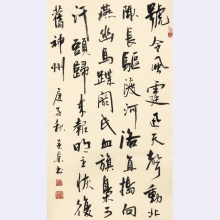 號令風霆迅天聲動北
陬長驅渡河洛直搗向
燕幽馬蹀閼氏血旗梟可
汗頭歸來報明主恢復
舊神州 庚子秋